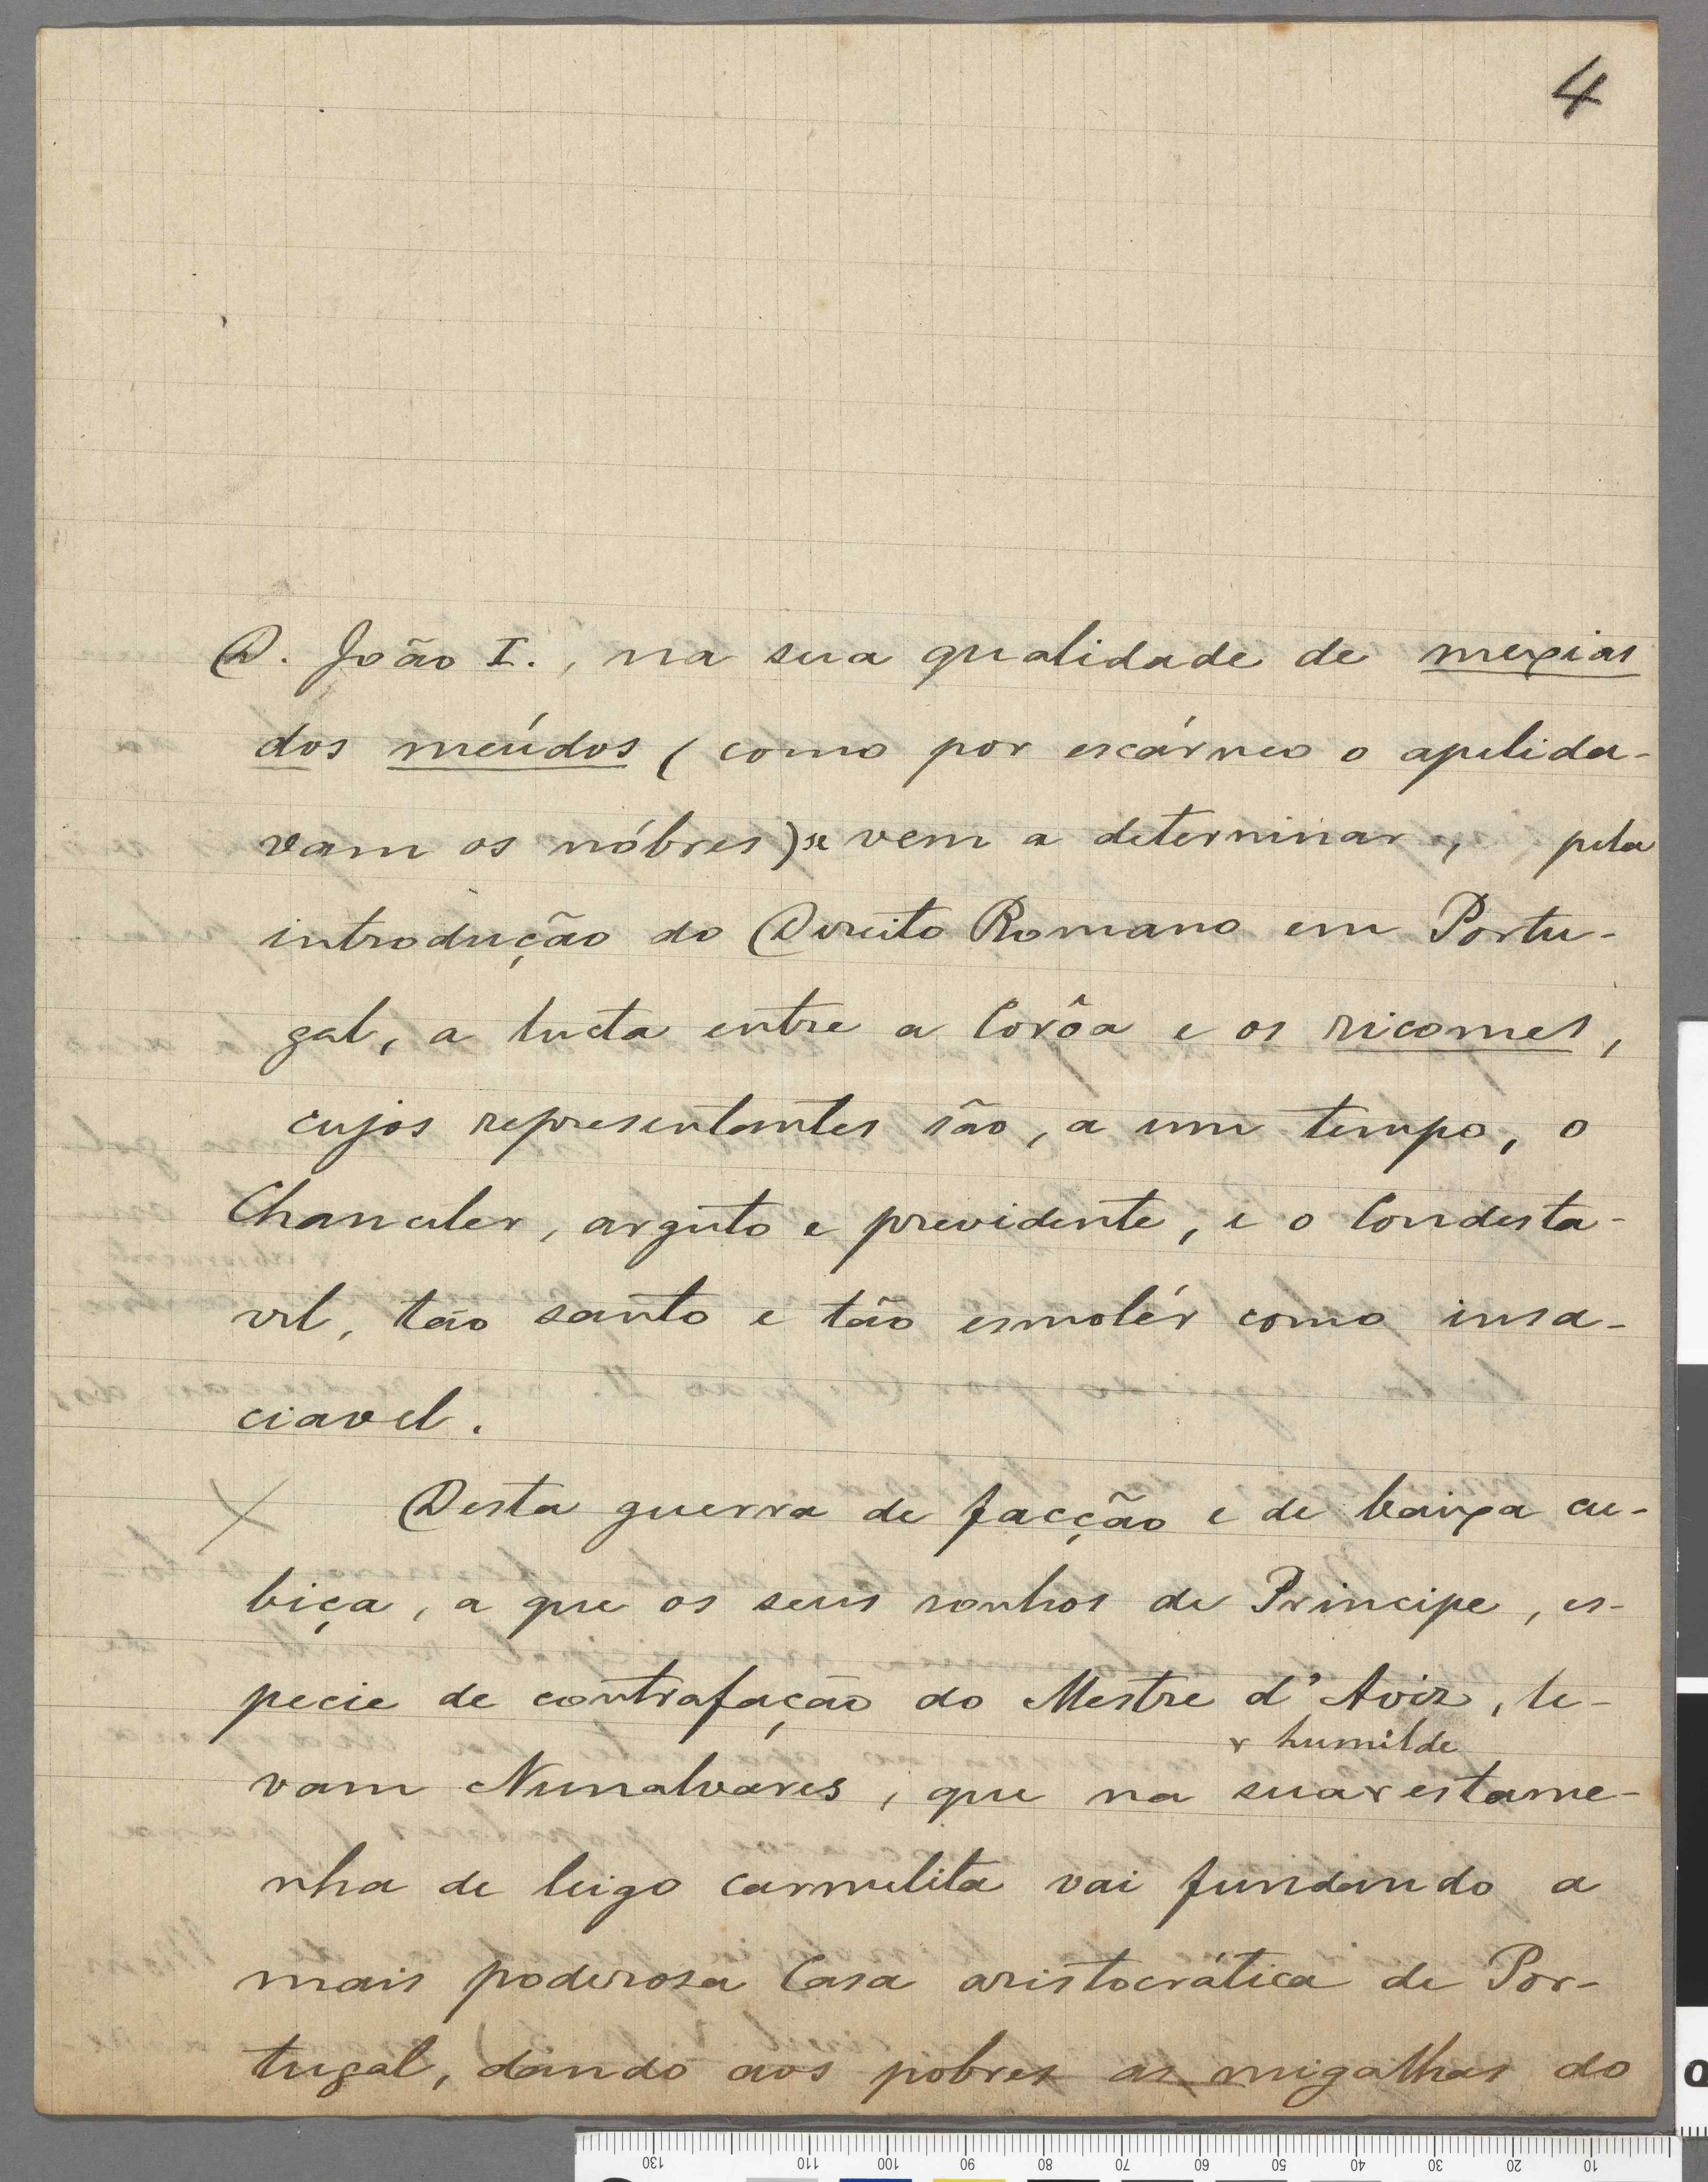 4
D. João I., na sua qualidade de mexias
dos meúdos (como por escárneo o apelida-
vam os nóbres) se vem a determinar, pela
introdução do Direito Romano em Portu-
gal, a lucta entre a Corôa e os ricomes,
cujos representantes são, a um tempo, o
Chanceler, arguto e previdente, e o Condesta-
vel, tão santo e tão esmolér como insa-
ciavel.
X Desta guerra de facção e de baixa cu-
biça, a que os seus sonhos de Principe, es-
pecie de contrafação do Mestre d'Aviz, le-
humilde
vam Nunalvares, que na sua estame-
nha de leigo carmelita vai fundando a
mais poderosa Casa aristocrática de Por-
tugal, dando aos pobres as migalhas do
130 110 100 90 80 70 60 50 40 30 20 10